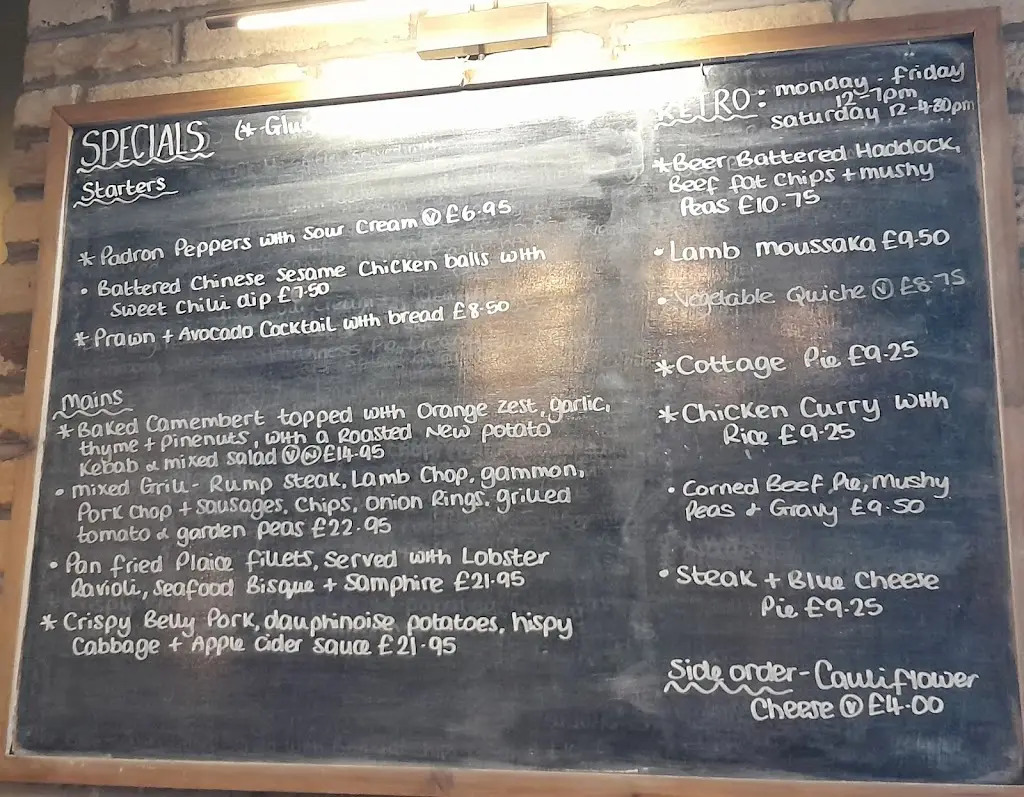 SPECIALS (*-Glu
Starters
* Padron Peppers with Sour Cream Ⓥ £6.95
• Battered Chinese Sesame Chicken balls with
Sweet Chilli dip £7.50
* Prawn + Avocado Cocktail with bread £8.50
Mains
* Baked Camembert topped with Orange zest, garlic,
thyme + pinenuts, with a Roasted New potato
Kebab & mixed salad Ⓥ Ⓝ £14.95
• mixed Grill - Rump Steak, Lamb Chop, gammon,
Pork chop + sausages, Chips, Onion Rings, grilled
tomato & garden peas £22.95
• Pan fried Plaice fillets, served with Lobster
Ravioli, seafood Bisque + Samphire £21.95
* Crispy Belly Pork, dauphinoise potatoes, hispy
Cabbage + Apple Cider sauce £21.95
RETRO: monday - friday
12-7pm
saturday 12-4.30pm
* Beer Battered Haddock,
Beef fat Chips + mushy
Peas £10.75
• Lamb moussaka £9.50
• Vegetable Quiche Ⓥ £8.75
* Cottage Pie £9.25
* Chicken Curry with
Rice £9.25
• Corned Beef Pie, Mushy
Peas & Gravy £9.50
• Steak + Blue Cheese
Pie £9.25
Side order - Cauliflower
Cheese Ⓥ £4.00